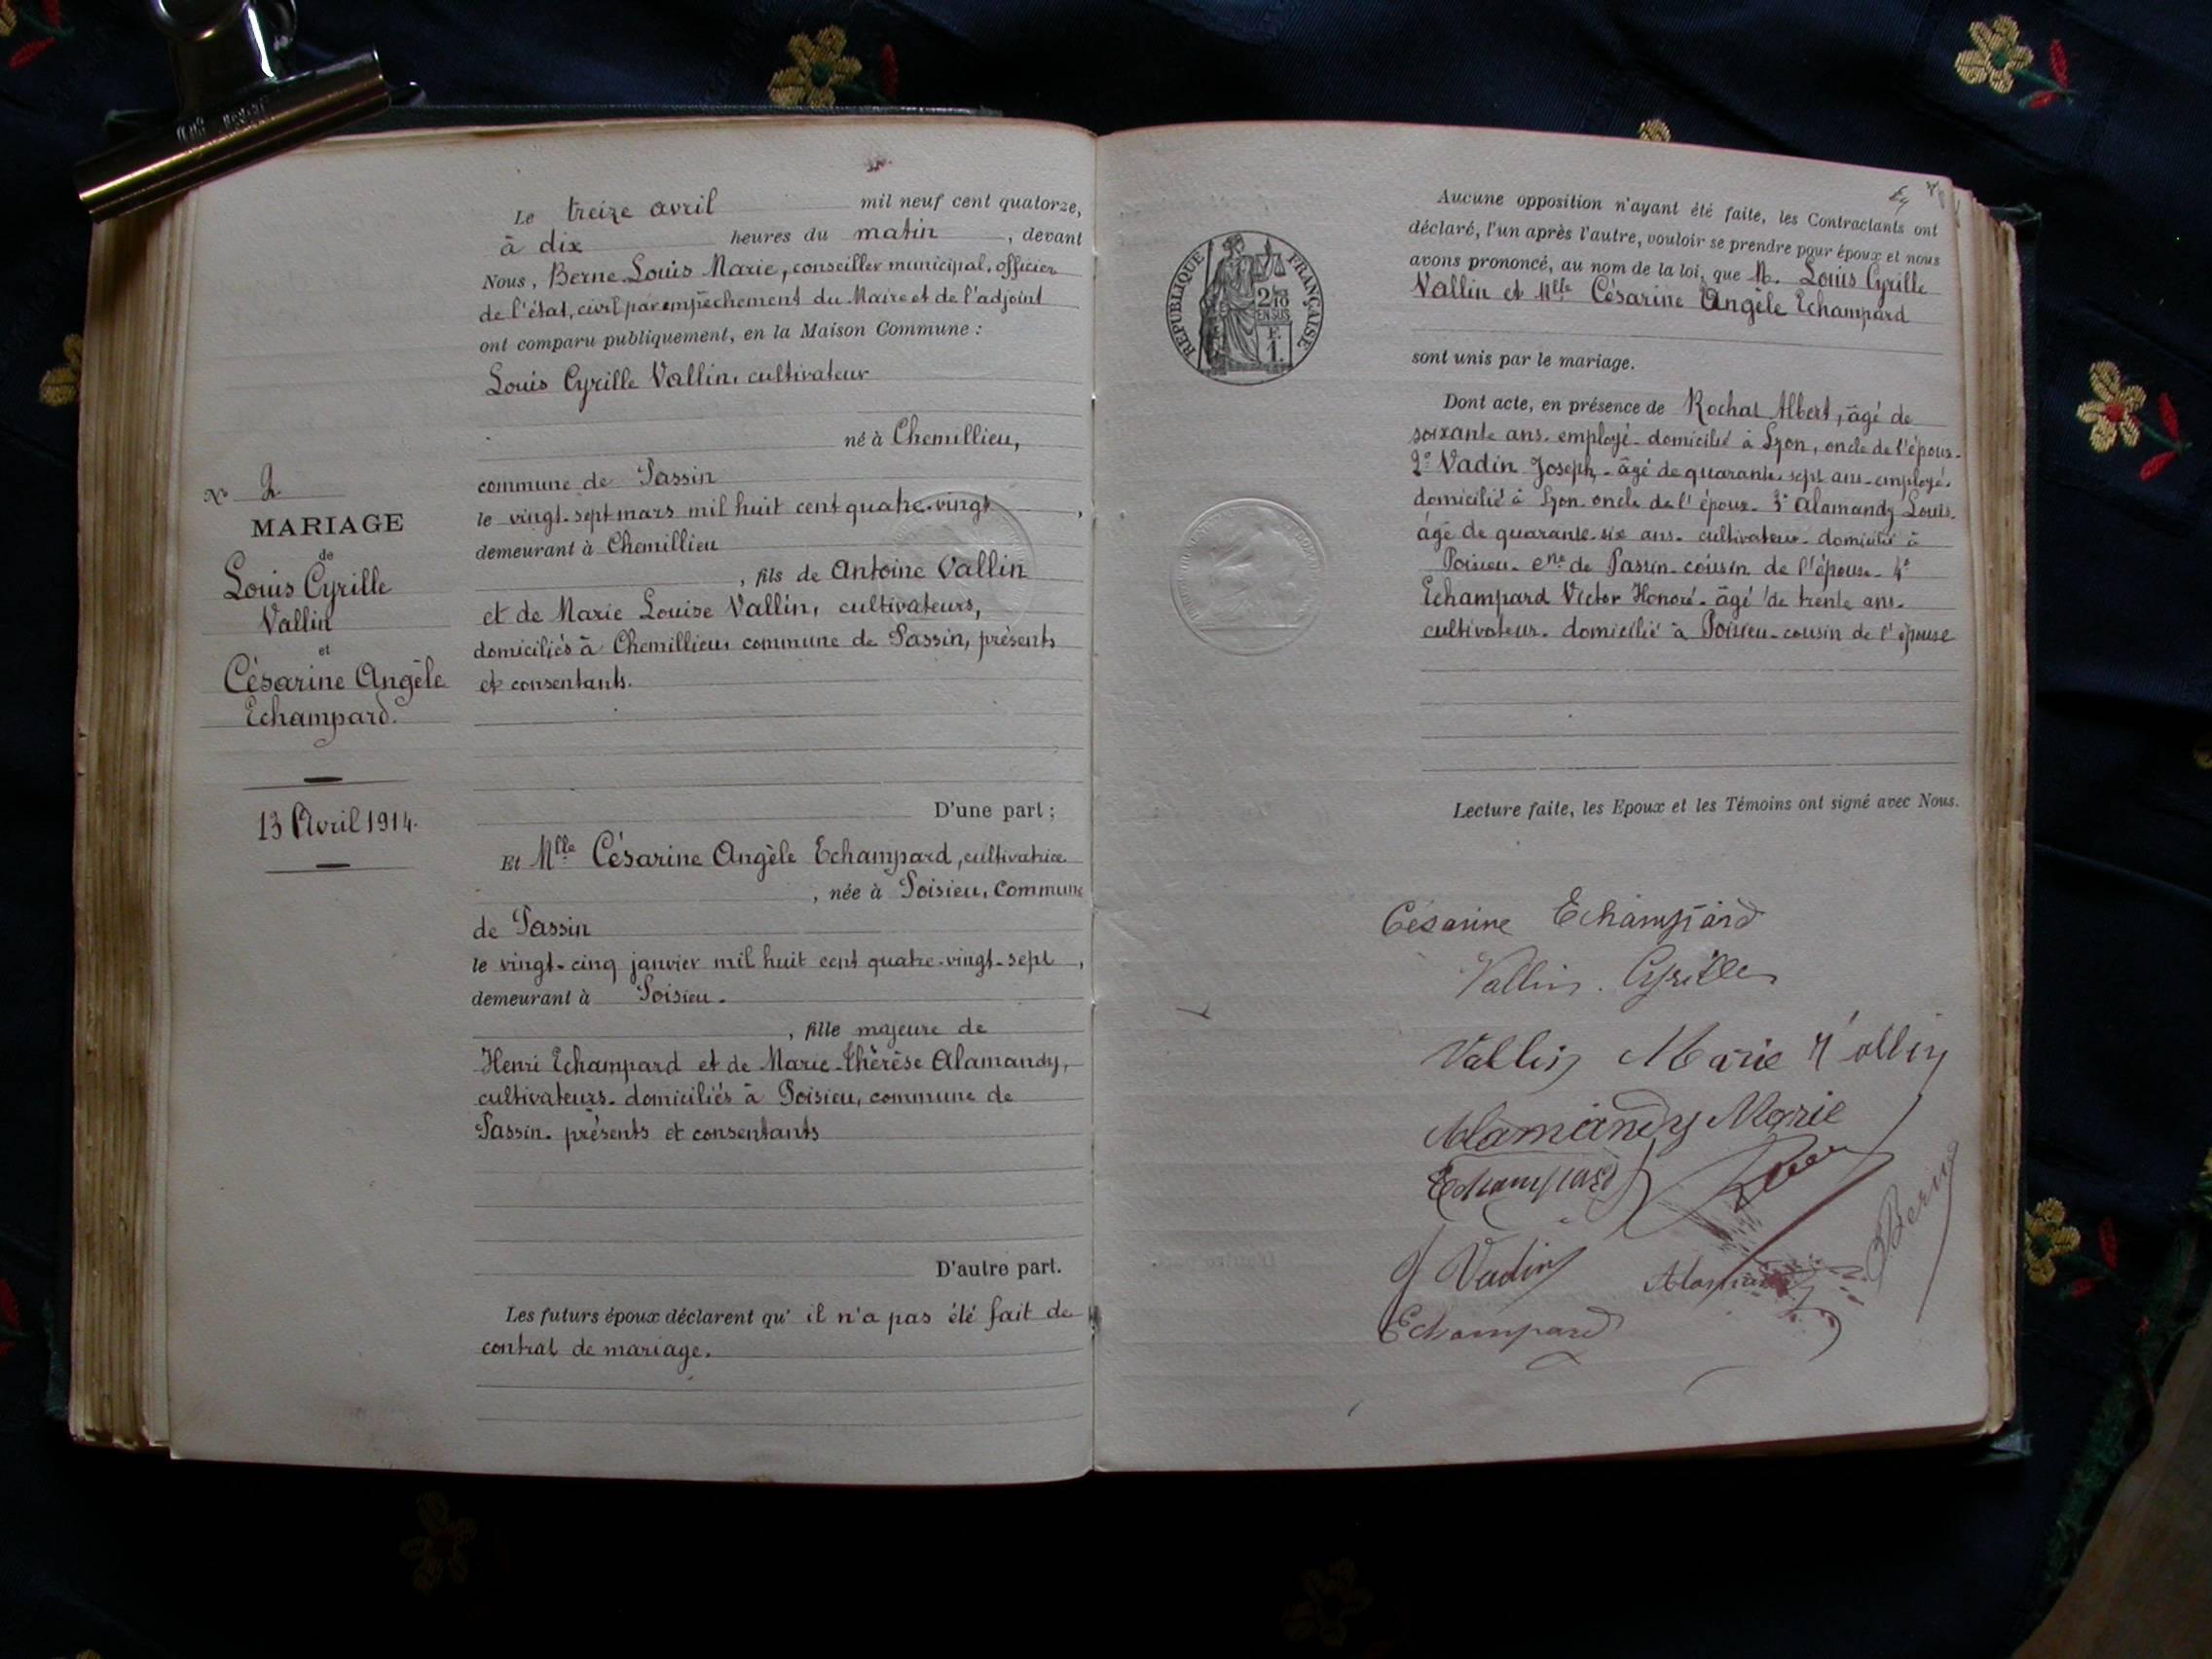 Le treize avril mil neuf cent quatorze,
à dix heures du matin, devant
Nous, Berne Louis Marie, conseiller municipal, officier
de l'état, civil par empêchement du Maire et de l'adjoint
ont comparu publiquement, en la Maison Commune :
Louis Cyrille Vallin, cultivateur
né à Chemillieu,
commune de Passin
le vingt-sept mars mil huit cent quatre-vingt,
demeurant à Chemillieu
, fils de Antoine Vallin
et de Marie Louise Vallin, cultivateurs,
domiciliés à Chemillieu, commune de Passin, présents
et consentants.
D'une part ;
Et Mlle Césarine Angèle Echampard, cultivatrice
, née à Poisieu, Commune
de Passin
le vingt-cinq janvier mil huit cent quatre-vingt-sept,
demeurant à Poisieu.
, fille majeure de
Henri Echampard et de Marie-thérèse Alamandy,
cultivateurs. domiciliés à Poisieu, commune de
Passin. présents et consentants
D'autre part.
Les futurs époux déclarent qu' il n'a pas été fait de
contrat de mariage.
N° 2
MARIAGE
de
Louis Cyrille
Vallin
et
Césarine Angèle
Echampard.
13 Avril 1914.
RÉPUBLIQUE FRANÇAISE
2/10
EN SUS
F.
1.
Aucune opposition n'ayant été faite, les Contractants ont
déclaré, l'un après l'autre, vouloir se prendre pour époux et nous
avons prononcé, au nom de la loi, que M. Louis Cyrille
Vallin et Mlle Césarine Angèle Echampard
sont unis par le mariage.
Dont acte, en présence de Rochat Albert, âgé de
soixante ans. employé. domicilié à Lyon, oncle de l'époux.
2° Vadin Joseph, âgé de quarante-sept ans. employé.
domicilié à Lyon. oncle de l'époux. 3° Alamandy Louis.
âgé de quarante-six ans. cultivateur. domicilié à
Poisieu. cne de Passin. cousin de l'épouse. 4°
Echampard Victor Honoré. âgé de trente ans.
cultivateur. domicilié à Poisieu. cousin de l'épouse
Lecture faite, les Epoux et les Témoins ont signé avec Nous.
Césarine Echampard
Vallin. Cyrille
Vallin Marie Vallin
Alamandy Marie
Echampard
J Vadin
Berne
Echampard